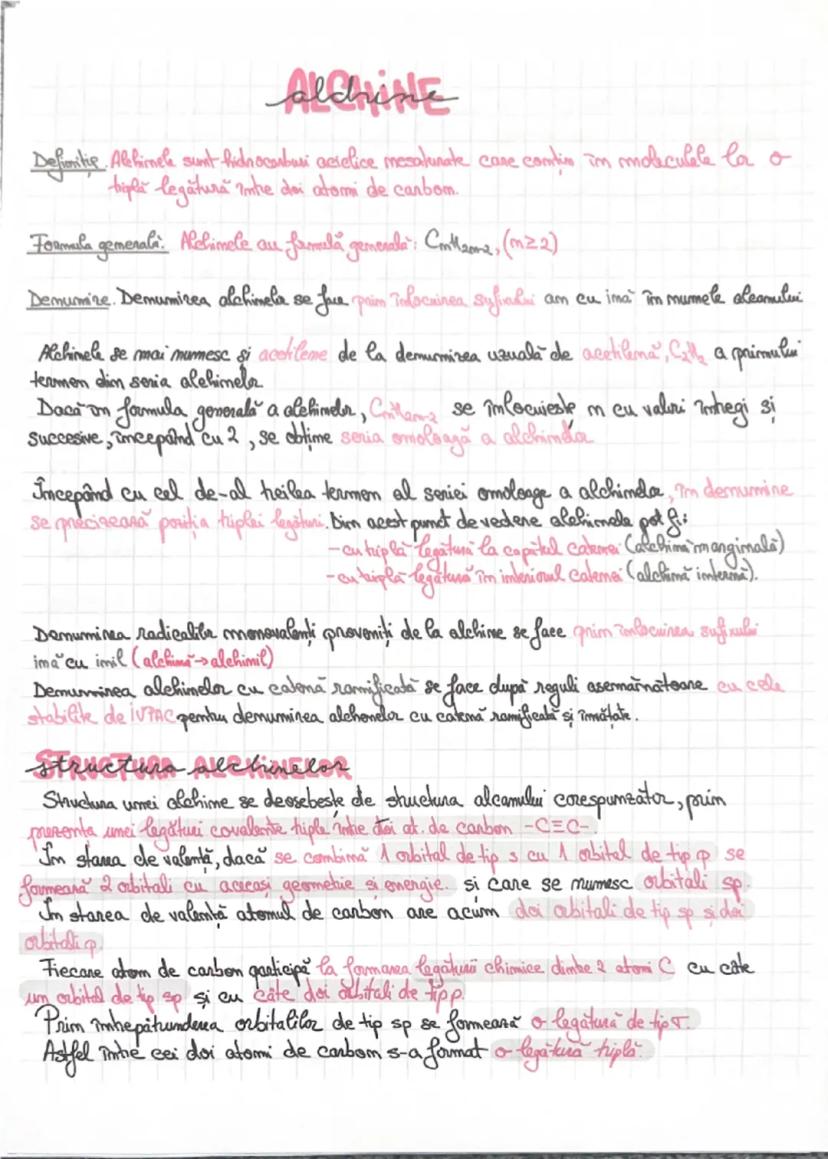 ALCHINE
alchine
Definiție. Alchinele sunt hidrocarburi aciclice nesaturate care conțin în moleculele lor o
triplă legătură între doi atomi de carbon.
Formula generală: Alchinele au formulă generală: CnH2n-2, (n≥2)
Denumire. Denumirea alchinelor se face prin înlocuirea sufixului an cu ină în numele alcanului
Alchinele se mai numesc și acetilene de la denumirea uzuală de acetilenă, C2H2 a primului
termen din seria alchinelor
Dacă în formula generală a alchinelor, CnH2n-2 se înlocuiește n cu valori întregi și
succesive, începând cu 2, se obține seria omoloagă a alchinelor
Începând cu cel de-al treilea termen al seriei omoloage a alchinelor, în denumire
se precizează poziția triplei legături. Din acest punct de vedere alchinele pot fi:
-cu triplă legătură la capătul catenei (alchină marginală)
-cu triplă legătură în interiorul catenei (alchină internă).
Denumirea radicalilor monovalenți proveniți de la alchine se face prin înlocuirea sufixului
ină cu inil (alchină→alchinil)
Denumirea alchinelor cu catenă ramificată se face după reguli asemărnătoare cu cele
stabilite de IUPAC pentru denumirea alchenelor cu catenă ramificată și
STRUCTURA ALCHINELOR
structura
Structura unei alchine se deosebește de structura alcanului corespunzător, prin
prezența unei legături covalente triple între doi at. de carbon -C≡C-.
În starea de valență, dacă se combină 1 orbital de tip s cu 1 orbital de tip p se
formează 2 orbitali cu aceeași geometrie și energie. și care se numesc orbitali sp.
În starea de valență atomul de carbon are acum doi orbitali de tip sp și doi
orbitali p.
Fiecare atom de carbon participă la formarea legăturii chimice dintre 2 atomi C cu câte
un orbital de tip sp și cu câte doi orbitali de tip p.
Prin întrepătrunderea orbitalilor de tip sp se formează o legătură de tip σ.
Astfel între cei doi atomi de carbon s-a format o legătură triplă.